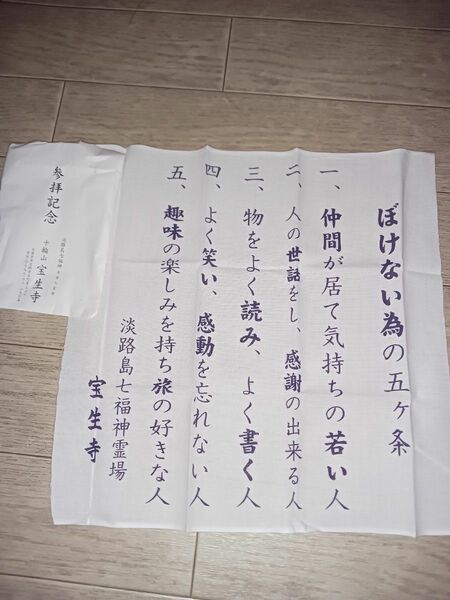 ぼけない為の五ヶ条
一、仲間が居て気持ちの若い人
二、人の世話をし、感謝の出来る人
三、物をよく読み、よく書く人
四、よく笑い、感動を忘れない人
五、趣味の楽しみを持ち旅の好きな人
淡路島七福神霊場
宝生寺
参拝記念
十輪山 宝生寺